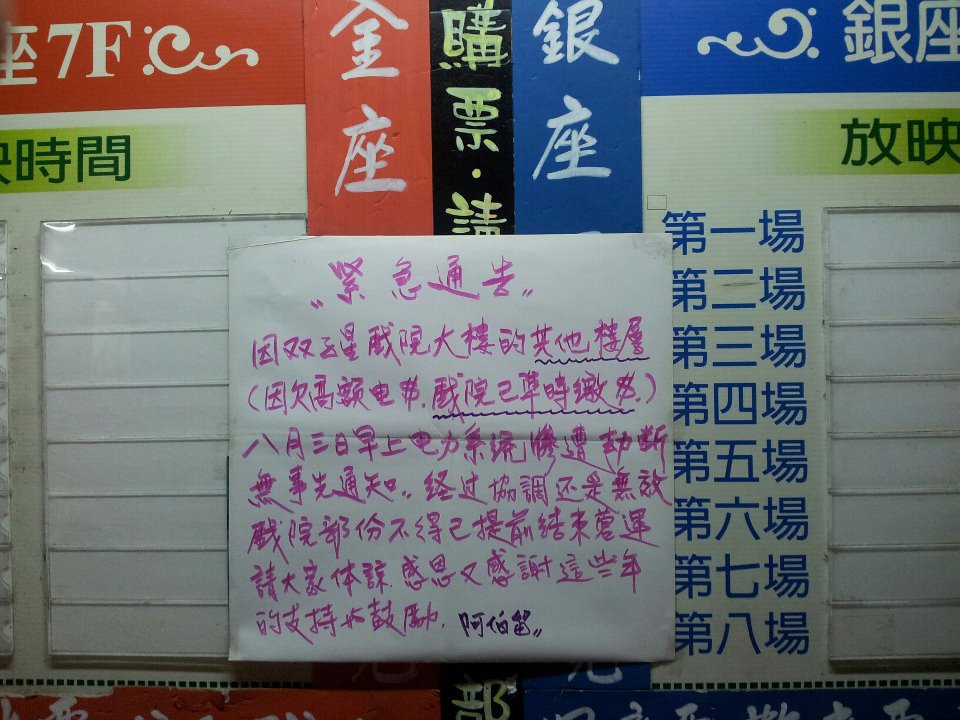 座7F
金座
購票·請
銀座
銀座
映時間
放映
第一場
第二場
第三場
第四場
第五場
第六場
第七場
第八場
〝緊急通告〞
因双子星戲院大樓的其他樓層
(因欠高額电费.戲院已準時繳费.)
八月三日早上电力系統慘遭剪斷
無事先通知〞经过協調还是無效
戲院部份不得已提前結束營運
請大家体諒.感恩又感謝這些年
的支持与鼓勵.
阿伯留〞
部